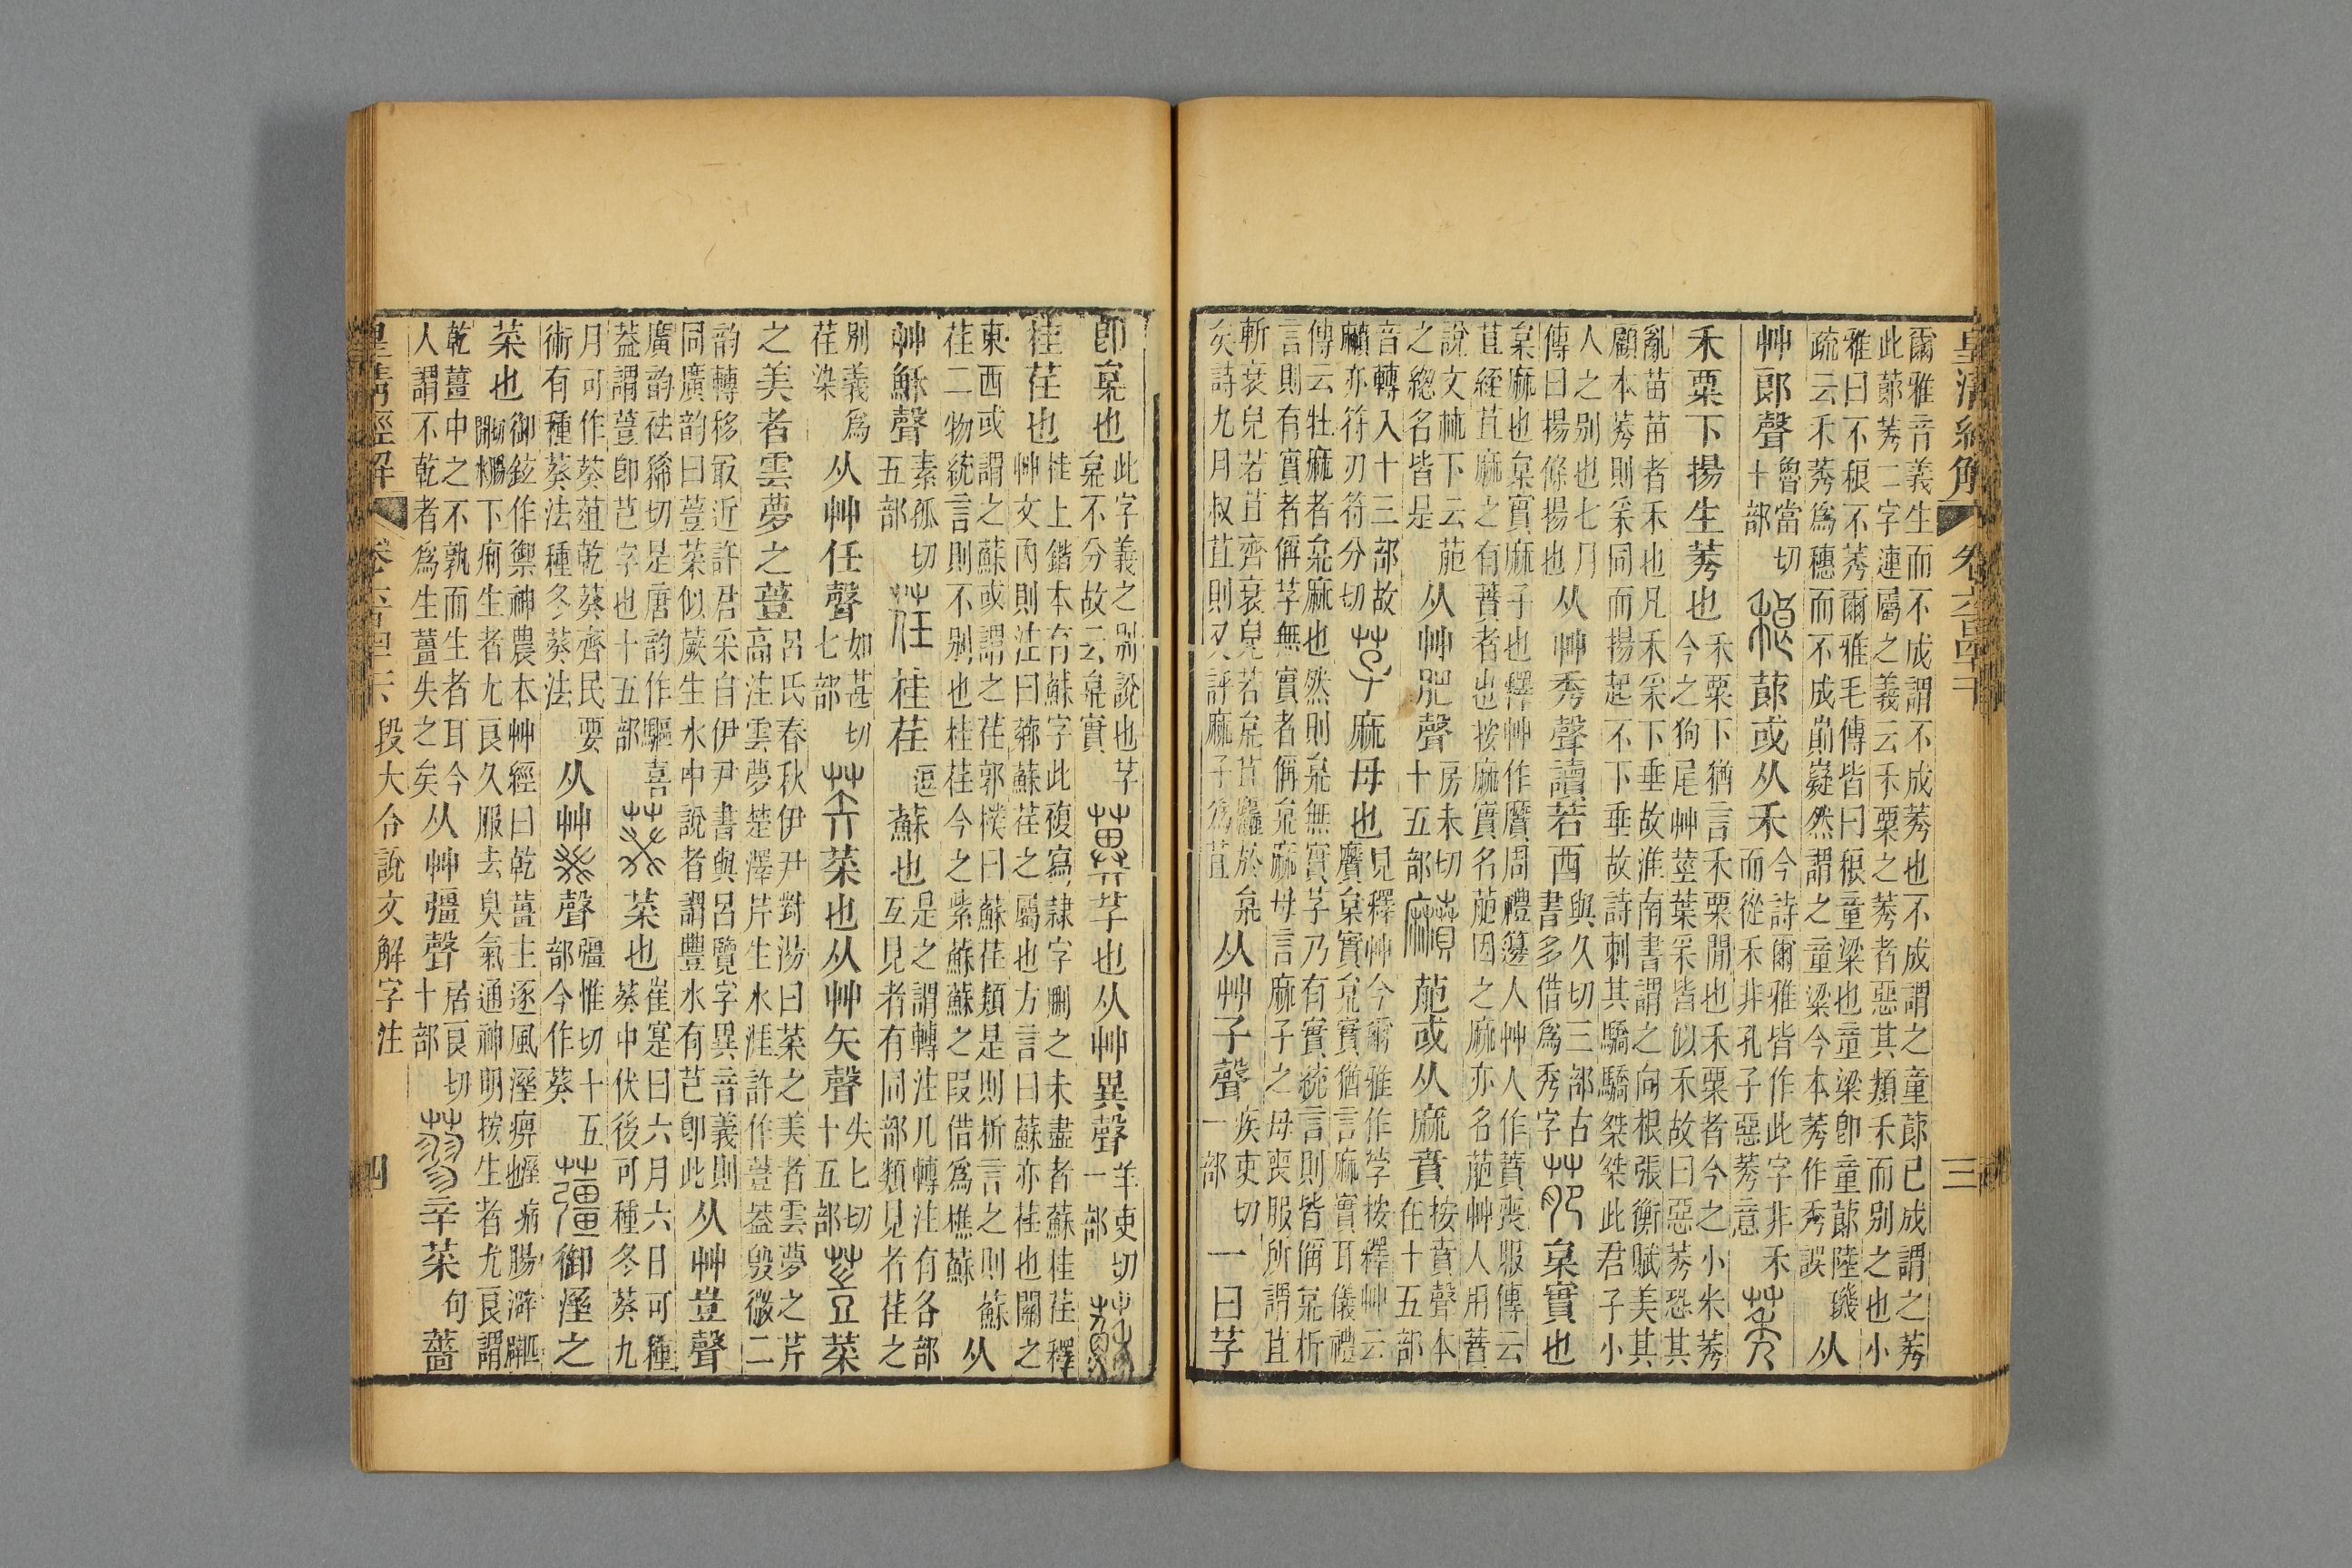 皇清經解 卷六百四十一下 三
爾雅音義生而不成謂不成莠也不成謂之童蓈已成謂之莠
此蓈莠二字連屬之義云禾粟之莠者惡其類禾而別之也小
雅曰不稂不莠爾雅毛傳皆曰稂童梁也童梁卽童蓈陸璣
疏云禾莠爲穗而不成崱嶷然謂之童粱今本莠作秀誤 从
艸郎聲 魯當切十部 稂 蓈或从禾 今詩爾雅皆作此字非禾而從禾非孔子惡莠意 莠
禾粟下揚生莠也 禾粟下猶言禾粟閒也禾粟者今之小米莠
今之狗尾艸莖葉采皆似禾故曰惡莠恐其
亂苗苗者禾也凡禾采下垂故淮南書謂之向根張衡賦美其
顧本莠則采同而揚起不下垂故詩刺其驕驕桀桀此君子小
人之別也七月傳曰揚條揚也 从艸秀聲讀若酉 與久切三部古書多借爲秀字 萉 枲實也
枲麻也枲實麻子也釋艸作黂周禮籩人艸人作蕡喪服傳云
苴絰苴麻之有蕡者也按麻實名萉因之麻亦名萉艸人用蕡
說文𣏟下云萉之總名皆是 从艸肥聲 房未切十五部 𪎰 萉或从麻賁 按賁聲本在十五部
音轉入十三部故顧亦符刃符分切 芓 麻母也 見釋艸今爾雅作荸按釋艸云黂枲實枲實猶言麻實耳儀禮
傳云牡麻者枲麻也然則枲無實芓乃有實統言則皆偁枲析
言則有實者偁芓無實者偁枲麻母言麻子之母喪服所謂苴
斬衰皃若苴齊衰皃若枲苴麤於枲
矣詩九月叔苴則又評麻子爲苴 从艸子聲 疾吏切一部 一曰芓
卽枲也 此字義之別說也芓枲不分故云枲實 𦳝 芓也从艸異聲 羊吏切一部 蘇
桂荏也 桂上鍇本有蘇字此複寫隸字刪之未盡者蘇桂荏釋
艸文內則注曰薌蘇荏之屬也方言曰蘇亦荏也關之
東西或謂之蘇或謂之荏郭樸曰蘇荏類是則析言之則蘇
荏二物統言則不別也桂荏今之紫蘇蘇之叚借爲樵蘇 从
艸穌聲 素孤切五部 荏 桂荏 逗 蘇也 是之謂轉注凡轉注有各部互見者有同部類見者荏之
別義爲荏染 从艸任聲 如甚切七部 𦬆 菜也从艸矢聲 失匕切十五部 䔇 菜
之美者雲夢之䔇 呂氏春秋伊尹對湯曰菜之美者雲夢之芹
高注雲夢楚澤芹生水涯許作䔇葢殷微二
韵轉移㝡近許君采自伊尹書與呂覽字異音義則
同廣韵曰䔇菜似蕨生水中說者謂豐水有芑卽此 从艸豈聲
廣韵祛豨切是唐韵作驅喜
葢謂䔇卽芑字也十五部 葵 菜也 崔寔曰六月六日可種葵中伏後可種冬葵九
月可作葵葅乾葵齊民要
術有種葵法種冬葵法 从艸癸聲 彊惟切十五部今作葵 薑 御溼之
菜也 御鉉作禦神農本艸經曰乾薑主逐風溼痺腸澼
下痢生者尤良久服去臭氣通神明按生者尤良謂
乾薑中之不孰而生者耳今
人謂不乾者爲生薑失之矣 从艸彊聲 居良切十部 蓼 辛菜 句 薔
皇清經解 卷六百四十一下 段大令說文解字注 四